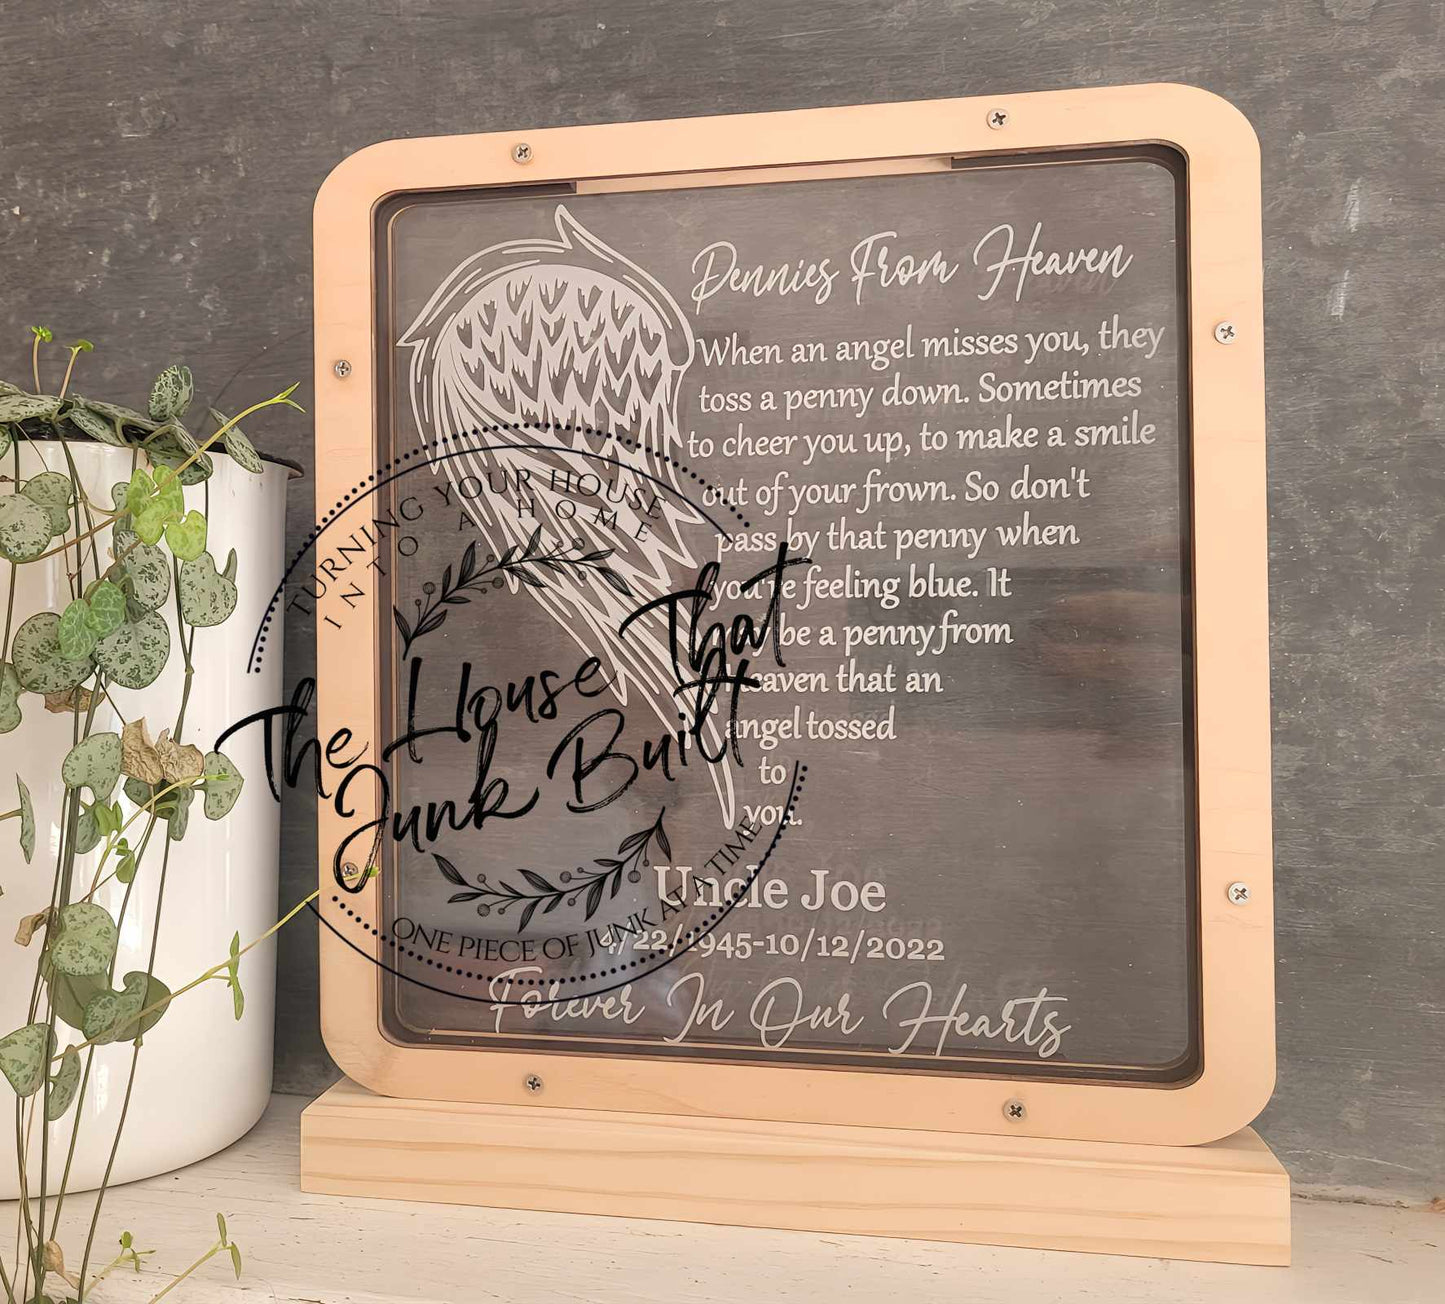 Pennies From Heaven
When an angel misses you, they
toss a penny down. Sometimes
to cheer you up, to make a smile
out of your frown. So don't
pass by that penny when
you're feeling blue. It
may be a penny from
heaven that an
angel tossed
to
you.
Uncle Joe
4/22/1945-10/12/2022
Forever In Our Hearts
TURNING YOUR HOUSE
INTO A HOME
The House That
Junk Built
ONE PIECE OF JUNK AT A TIME